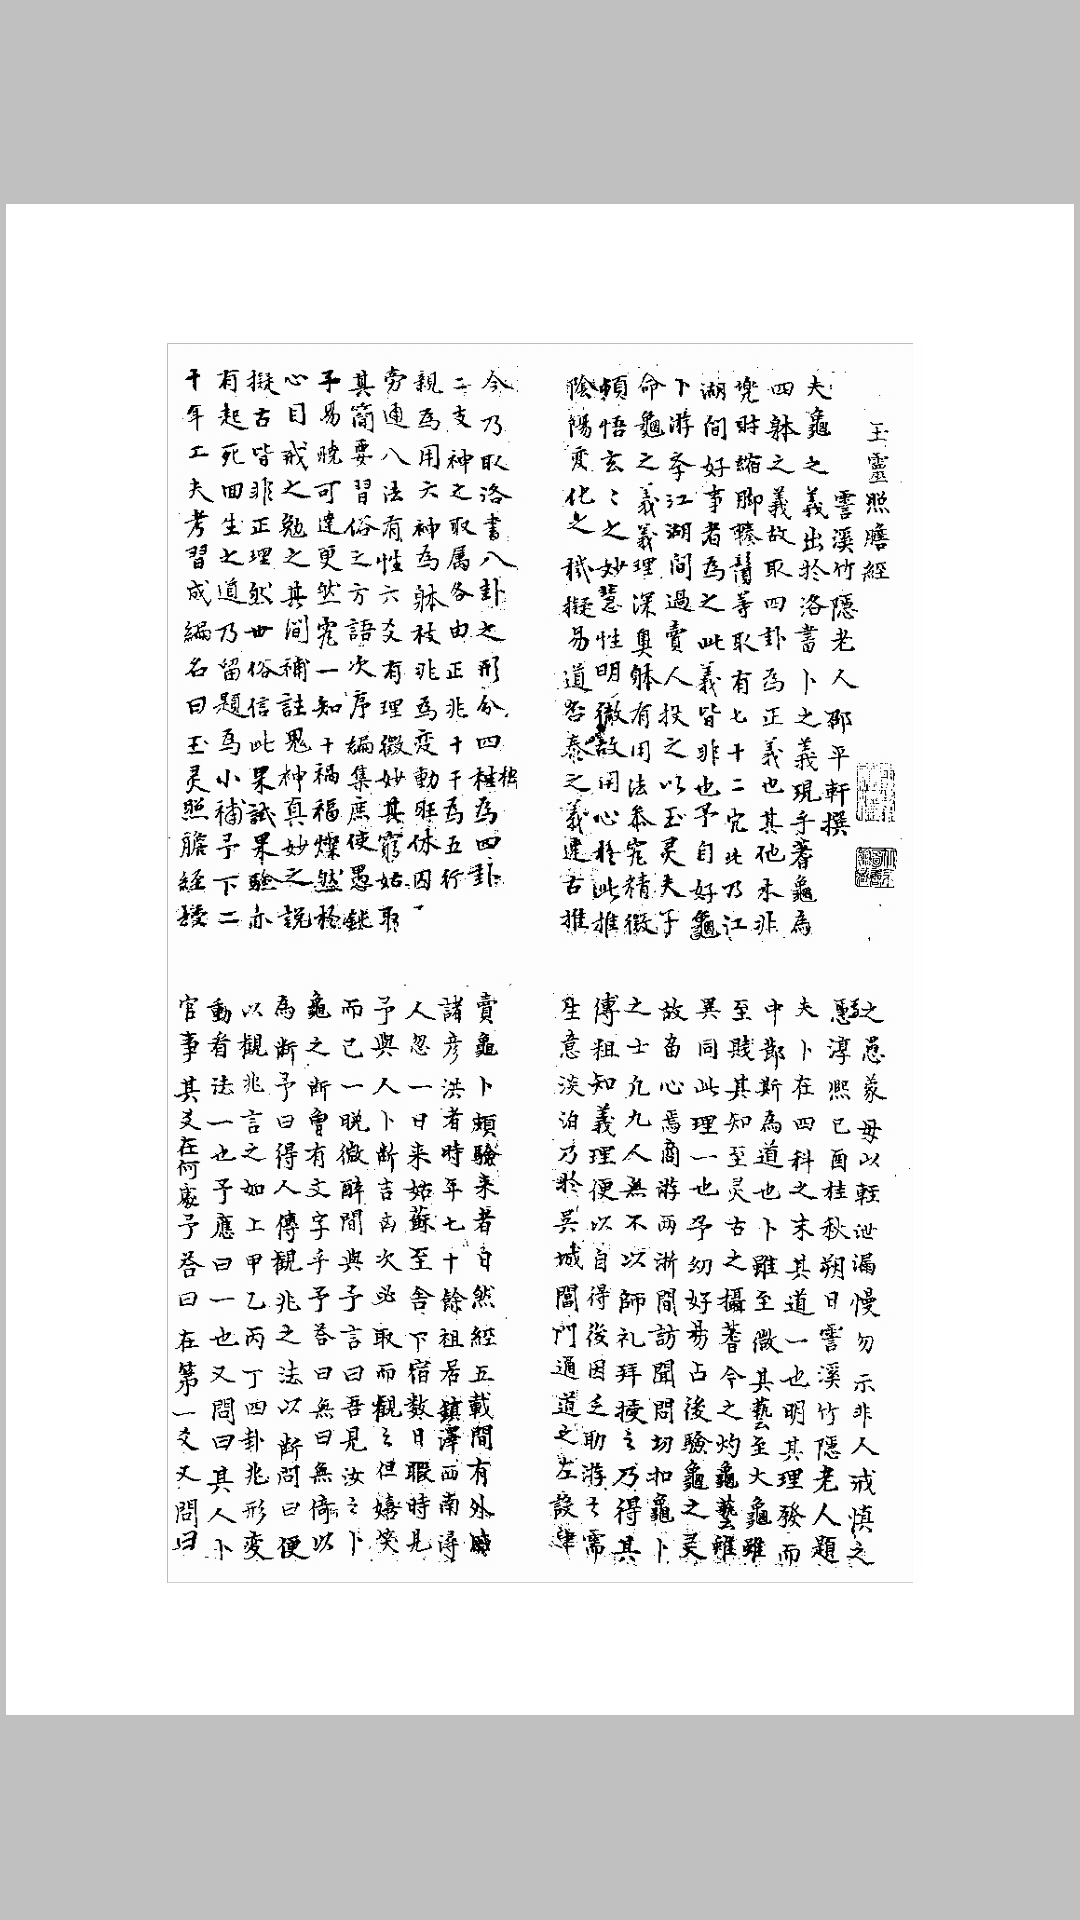 玉靈照膽經
霅溪竹隱老人邵平軒撰
夫龜之義出於洛書卜之義現乎蓍龜為
四躰之義故取四卦為正義也其他亦非
兠財縮脚縧鬚等取有七十二宂此乃江
湖間好事者為之此義皆非也予自好龜
卜游乎江湖間過賣人投之以玉灵夫子
命龜之義義理深奥躰有用法叅宂精微
頓悟玄〻之妙慧性明徹故用心於此推
陰陽変化之 擬易道否泰之义達古推
今乃取洛書八卦之形分四種為四卦
二支神之取属各由正兆十干為五行
親為用六神為躰枝兆為変動旺休囚
旁通八法有性六爻有理微妙其窮姑取
其簡要習俗之方語次序編集庶使愚
予易曉可達更然宂一知十禍福燦然於
心目戒之勉之其間補註鬼神真妙之說
擬古皆非正理然世俗信此果試果驗亦
有起死回生之道乃留題為小補予下二
千年工夫考習成編名曰玉灵照膽經授
之愚蒙毋以輕泄漏慢勿示非人戒慎之
淳熙己酉桂秋朔日霅溪竹隱老人題
夫卜在四科之末其道一也明其理發而
中鄭斯為道也卜雖至微其藝至大龜雖
至賤其知至灵古之攝蓍今之灼龜藝雖
異同此理一也予幼好易占後驗龜之灵
故畄心焉商游兩浙間訪聞問切扣龜卜
之士凢九人無不以師礼拜授之乃得其
傳粗知義理便以自得後因乏助游之需
生意淡泊乃於吳城閶門通道之左設肆
賣龜卜頗驗来者自然經五載間有外
諸彦洪者時年七十餘祖居鎮澤西南潯
人忽一日来姑蘇至舍下宿数日暇時見
予與人卜断吉凶次必取而觀之但嬉笑
而已一晚微醉間與予言曰吾見汝之卜
龜之断曾有文字乎予荅曰無曰無倚以
為断予曰得人傳觀兆之法以断問曰便
以觀兆言之如上甲乙丙丁四卦兆形変
動看法一也予應曰一也又問曰其人卜
官事其爻在何處予荅曰在第一爻又問曰